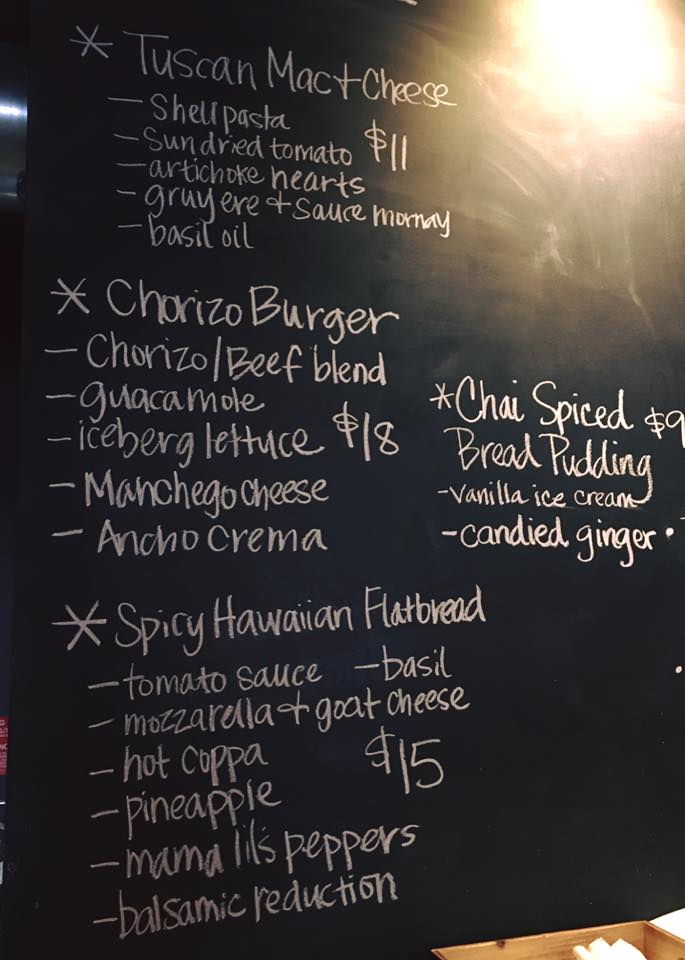 * Tuscan Mac + Cheese
- Shell pasta
- Sun dried tomato $11
- artichoke hearts
- gruyere + Sauce mornay
- basil oil
* Chorizo Burger
- Chorizo/Beef blend
- guacamole
- iceberg lettuce $18
- Manchego cheese
- Ancho Crema
* Chai Spiced $9
Bread Pudding
- vanilla ice cream
- candied ginger
* Spicy Hawaiian Flatbread
- tomato sauce - basil
- mozzarella + goat cheese
- hot coppa $15
- pineapple
- mama lil's peppers
- balsamic reduction